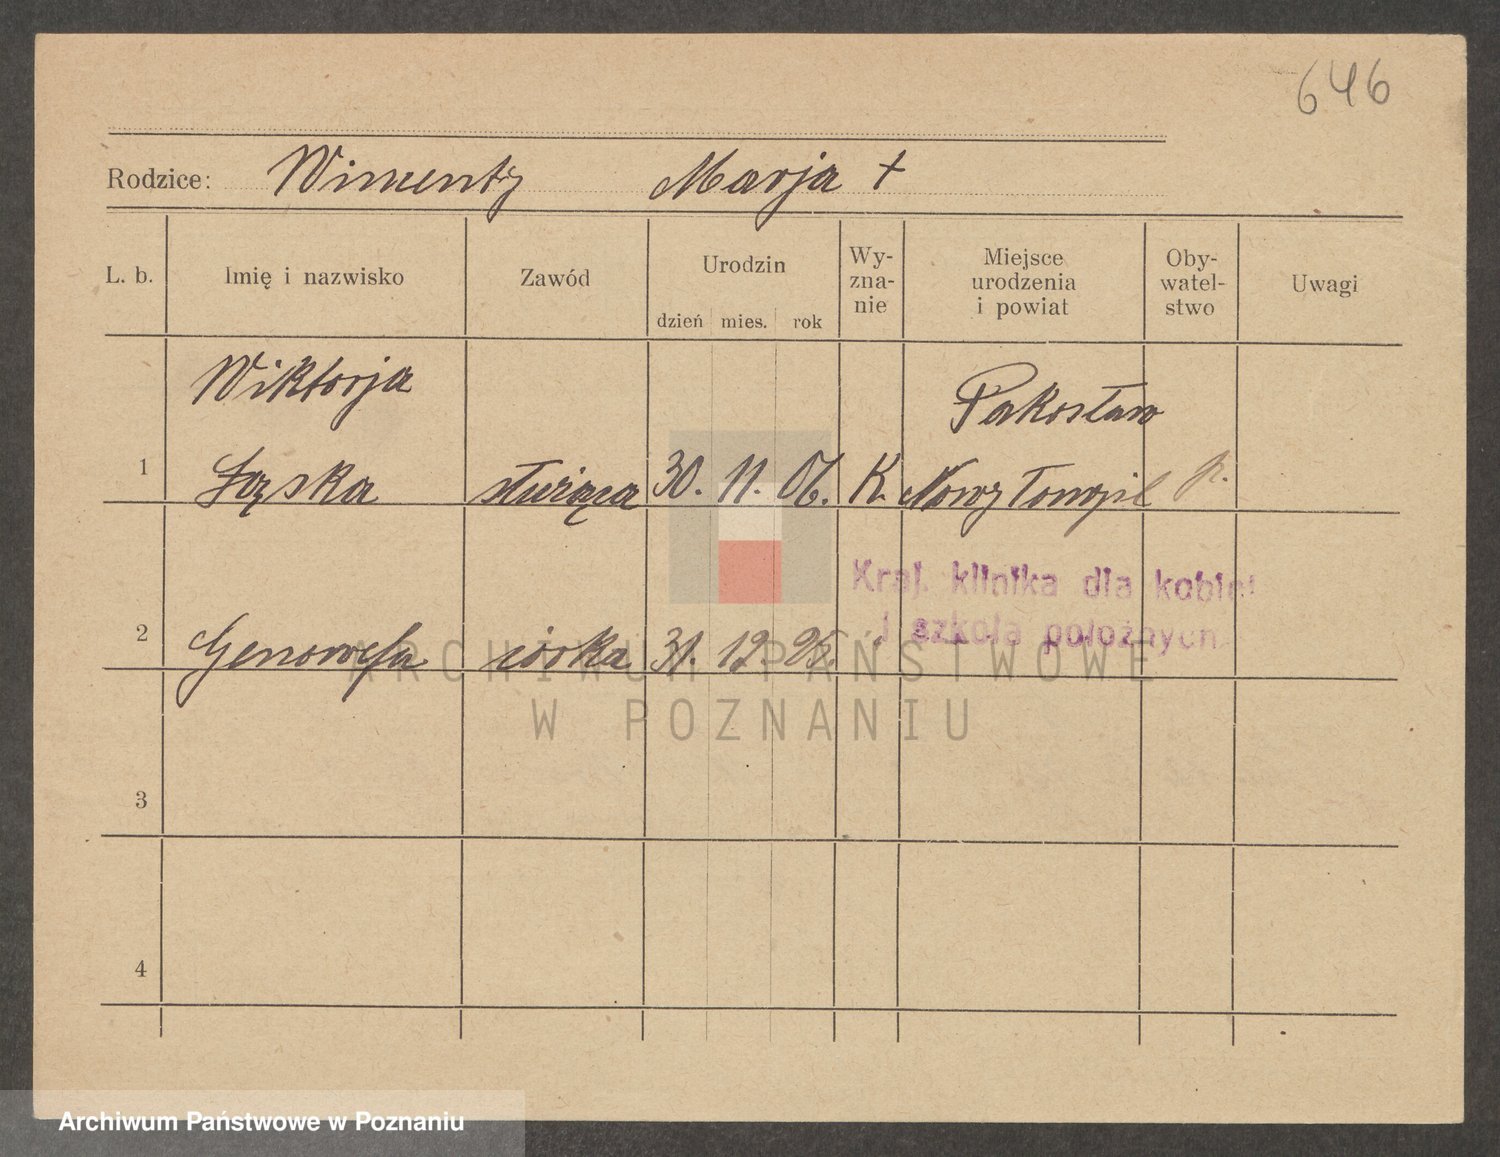 646
Rodzice: Wincenty Marja +
L. b. Imię i nazwisko Zawód Urodzin dzień mies. rok Wy-zna-nie Miejsce urodzenia i powiat Oby-watel-stwo Uwagi
Wiktorja Pakosław
1 Łąska służąca 30. 11. 06. K. Nowy Tomyśl p.
Kraj. klinika dla kobiet
i szkoła położnych
2 Genowefa córka 31. 12. 25.
ARCHIWUM PAŃSTWOWE
W POZNANIU
3
4
Archiwum Państwowe w Poznaniu